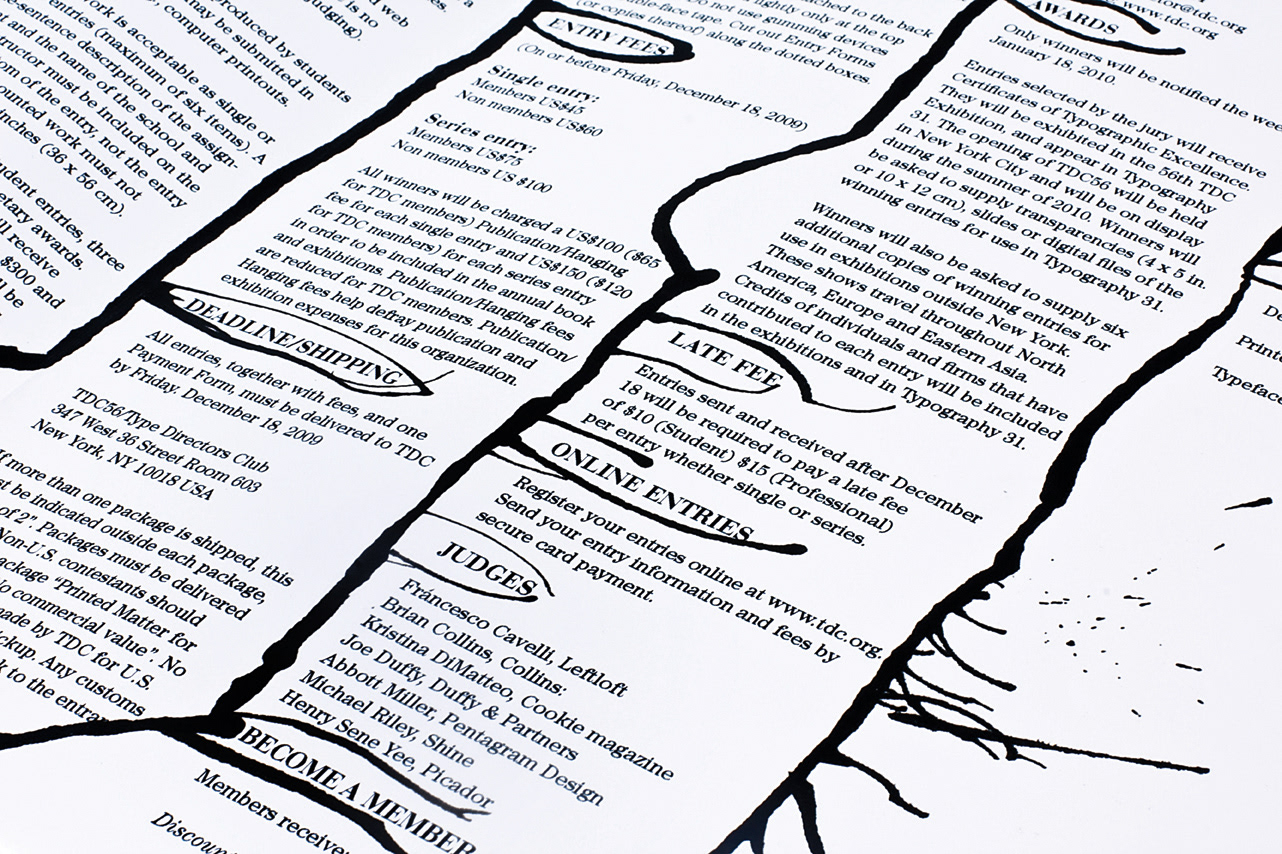 produced by students
may be submitted in
computer printouts.
work is acceptable as single or
entries (maximum of six items). A
-sentence description of the assign-
and the name of the school and
must be included on the
of the entry, not the entry
work must not
(36 x 56 cm).
entries, three
awards.
receive
$300 and
be
DEADLINE/SHIPPING
All entries, together with fees, and one
Payment Form, must be delivered to TDC
by Friday, December 18, 2009
TDC56/Type Directors Club
347 West 36 Street Room 603
New York, NY 10018 USA
If more than one package is shipped, this
be indicated outside each package,
of 2". Packages must be delivered
Non-U.S. contestants should
"Printed Matter for
commercial value". No
made by TDC for U.S.
Any customs
to the
to the back
tightly only at the top
tape. Cut out Entry Forms
not use gumming devices
(or copies thereof) along the dotted boxes
ENTRY FEES
(On or before Friday, December 18, 2009)
Single entry:
Members US$45
Non members US$60
Series entry:
Members US$75
Non members US $100
All winners will be charged a US$100 ($65
for TDC members) Publication/Hanging
fee for each single entry and US$150 ($120
for TDC members) for each series entry
in order to be included in the annual book
and exhibitions. Publication/Hanging fees
are reduced for TDC members. Publication/
Hanging fees help defray publication and
exhibition expenses for this organization.
LATE FEE
Entries sent and received after December
18 will be required to pay a late fee
of $10 (Student) $15 (Professional)
per entry whether single or series.
ONLINE ENTRIES
Register your entries online at www.tdc.org.
Send your entry information and fees by
secure card payment.
JUDGES
Fráncesco Cavelli, Leftloft
Brian Collins, Collins:
Kristina DiMatteo, Cookie magazine
Joe Duffy, Duffy & Partners
Abbott Miller, Pentagram Design
Michael Riley, Shine
Henry Sene Yee, Picador
BECOME A MEMBER
Members receive
www.tdc.org
AWARDS
Only winners will be notified the week
January 18, 2010.
Entries selected by the jury will receive
Certificates of Typographic Excellence.
They will be exhibited in the 56th TDC
Exhibition, and appear in Typography
31. The opening of TDC56 will be held
in New York City and will be on display
during the summer of 2010. Winners will
be asked to supply transparencies (4 x 5 in.
or 10 x 12 cm), slides or digital files of the
winning entries for use in Typography 31.
Winners will also be asked to supply six
additional copies of winning entries for
use in exhibitions outside New York.
These shows travel through North
America, Europe and Eastern Asia.
Credits of individuals and firms that have
contributed to each entry will be included
in the exhibitions and in Typography 31.